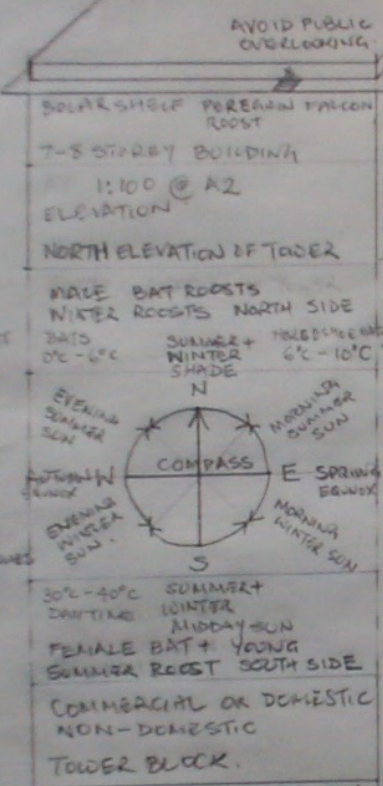 AVOID PUBLIC
OVERLOOKING
SOLAR SHELF PEREGRIN FALCON
ROOST
7-8 STOREY BUILDING
1:100 @ A2
ELEVATION
NORTH ELEVATION OF TOWER
MALE BAT ROOSTS
WINTER ROOSTS NORTH SIDE
BATS
0°C-6°C
SUMMER+
WINTER
SHADE
6°C-10°C
N
EVENING
SUMMER
SUN
MORNING
SUMMER
SUN
AUTUMN W COMPASS E SPRING
EQUNOX EQUNOX
EVENING
WINTER
SUN.
MORNING
WINTER SUN
S
30°C-40°C SUMMER+
DAYTIME WINTER
MIDDAY SUN
FEMALE BAT + YOUNG
SUMMER ROOST SOUTH SIDE
COMMERCIAL OR DOMESTIC
NON-DOMESTIC
TOWER BLOCK.